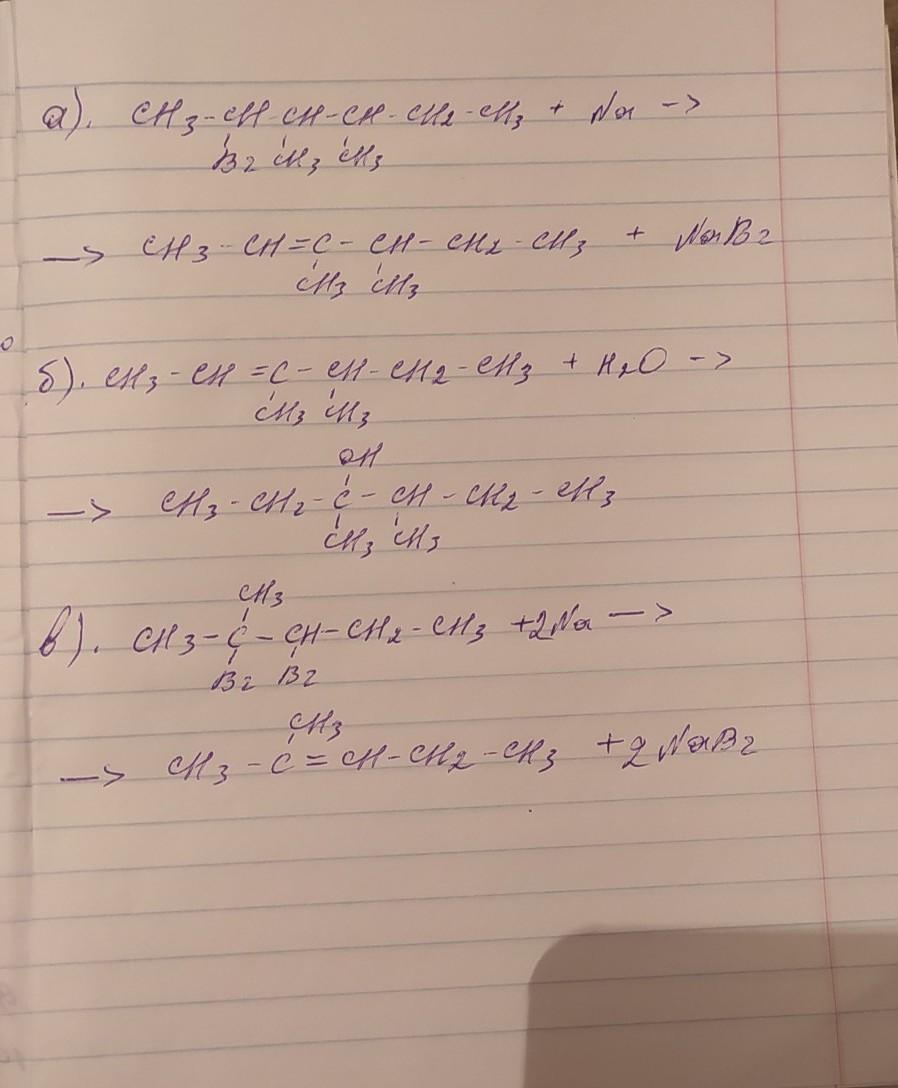 а). CH3-CH-CH-CH-CH2-CH3 + Na ->
Br CH3 CH3
-> CH3-CH=C-CH-CH2-CH3 + NaBr
CH3 CH3
б). CH3-CH=C-CH-CH2-CH3 + H2O ->
CH3 CH3
OH
-> CH3-CH2-C-CH-CH2-CH3
CH3 CH3
CH3
в). CH3-C-CH-CH2-CH3 +2Na ->
Br Br
CH3
-> CH3-C=CH-CH2-CH3 +2NaBr